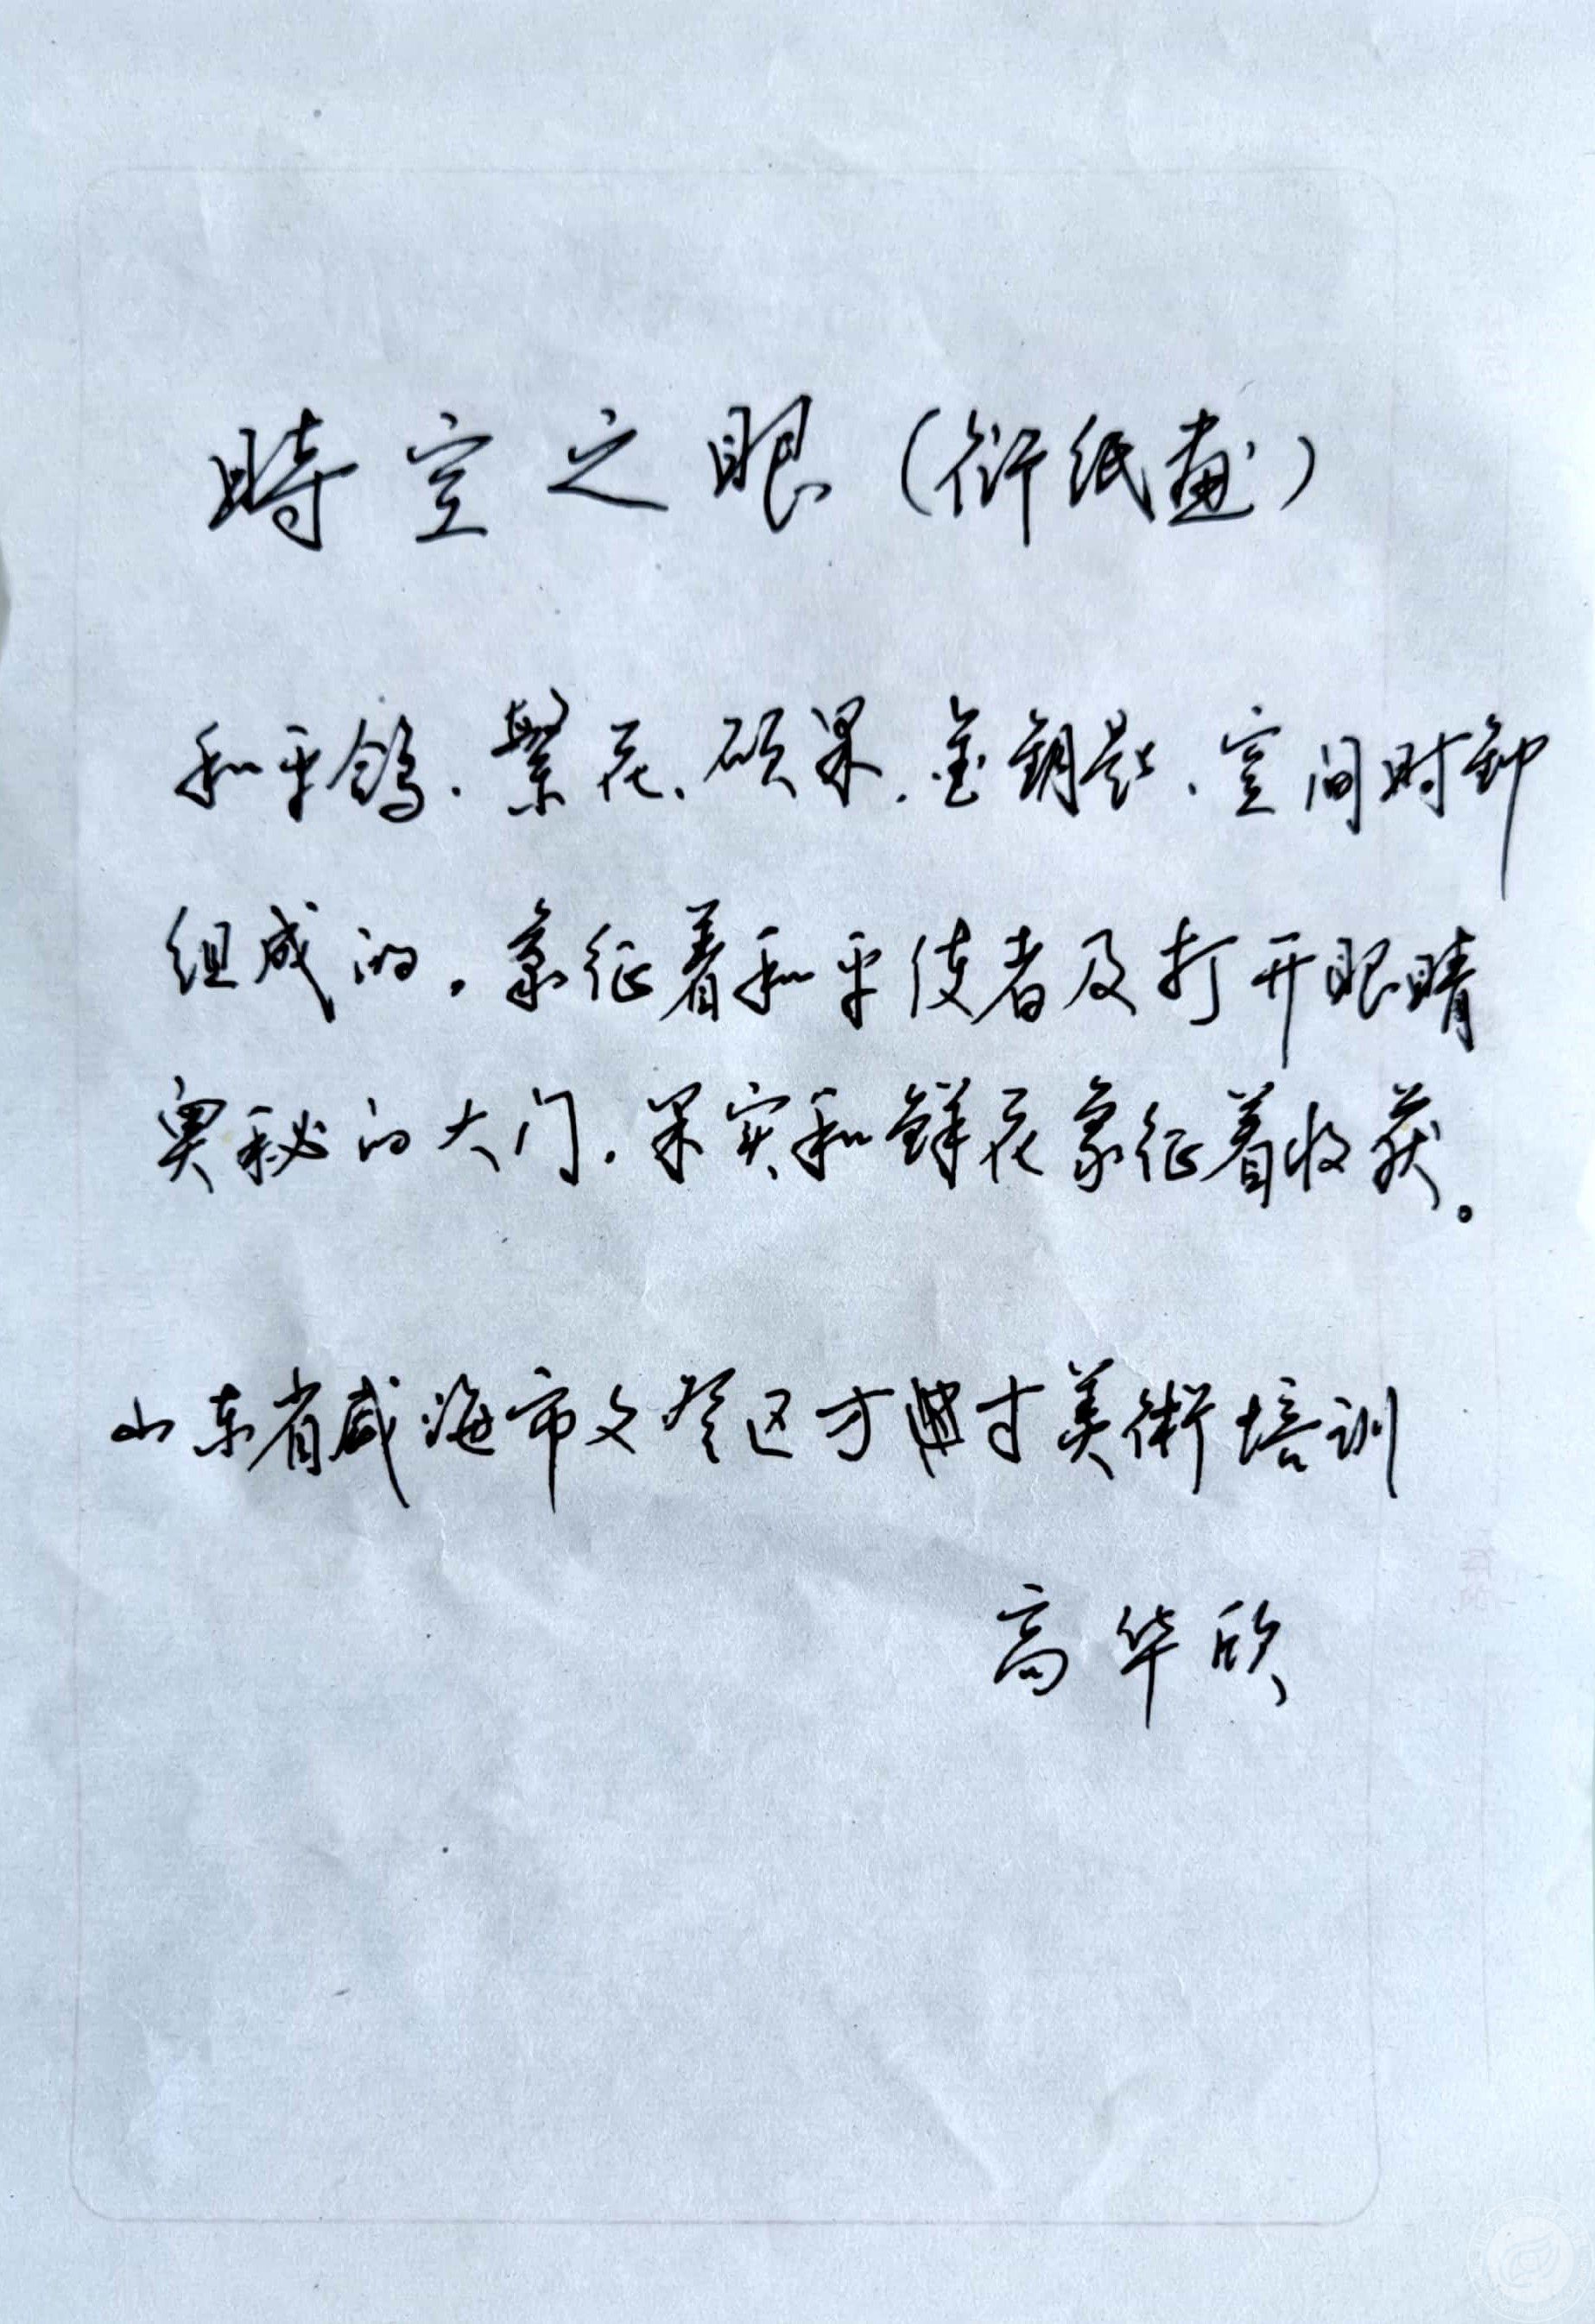 時空之眼（衍纸画）
和平鸽、繁花、硕果、金钥匙、空间时钟
组成的。象征着和平使者及打开眼睛
奥秘的大门。果实和鲜花象征着收获。
山东省威海市文登区方寸美術培训
高华欣